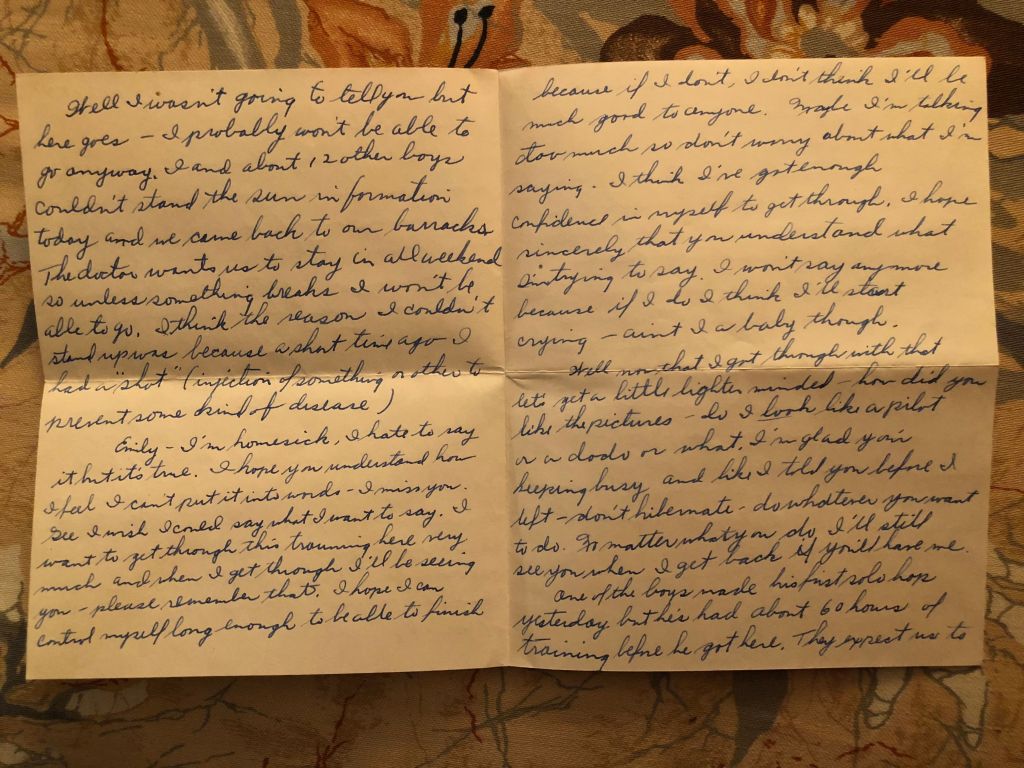 Well I wasn't going to tell you but
here goes – I probably won't be able to
go anyway. I and about 12 other boys
couldn't stand the sun in formation
today and we came back to our barracks
The doctor wants us to stay in all weekend
so unless something breaks I won't be
able to go. I think the reason I couldn't
stand up was because a short time ago I
had a "shot" (injection of something or other to
prevent some kind of disease)
Emily – I'm homesick, I hate to say
it but it's true. I hope you understand how
I feel I can't put it into words – I miss you.
Gee I wish I could say what I want to say. I
want to get through this training here very
much and when I get through I'll be seeing
you – please remember that. I hope I can
control myself long enough to be able to finish
because if I don't, I don't think I'll be
much good to anyone. Maybe I'm talking
too much so don't worry about what I'm
saying. I think I've got enough
confidence in myself to get through. I hope
sincerely that you understand what
I'm trying to say. I won't say anymore
because if I do I think I'll start
crying – aint I a baby though.
Well now that I got through with that
let's get a little lighter minded – how did you
like the pictures – do I look like a pilot
or a dodo or what. I'm glad you're
keeping busy and like I told you before I
left – don't hibernate – do whatever you want
to do. No matter what you do I'll still
see you when I get back if you'll have me.
One of the boys made his first solo hop
yesterday but he's had about 60 hours of
training before he got here. They expect us to